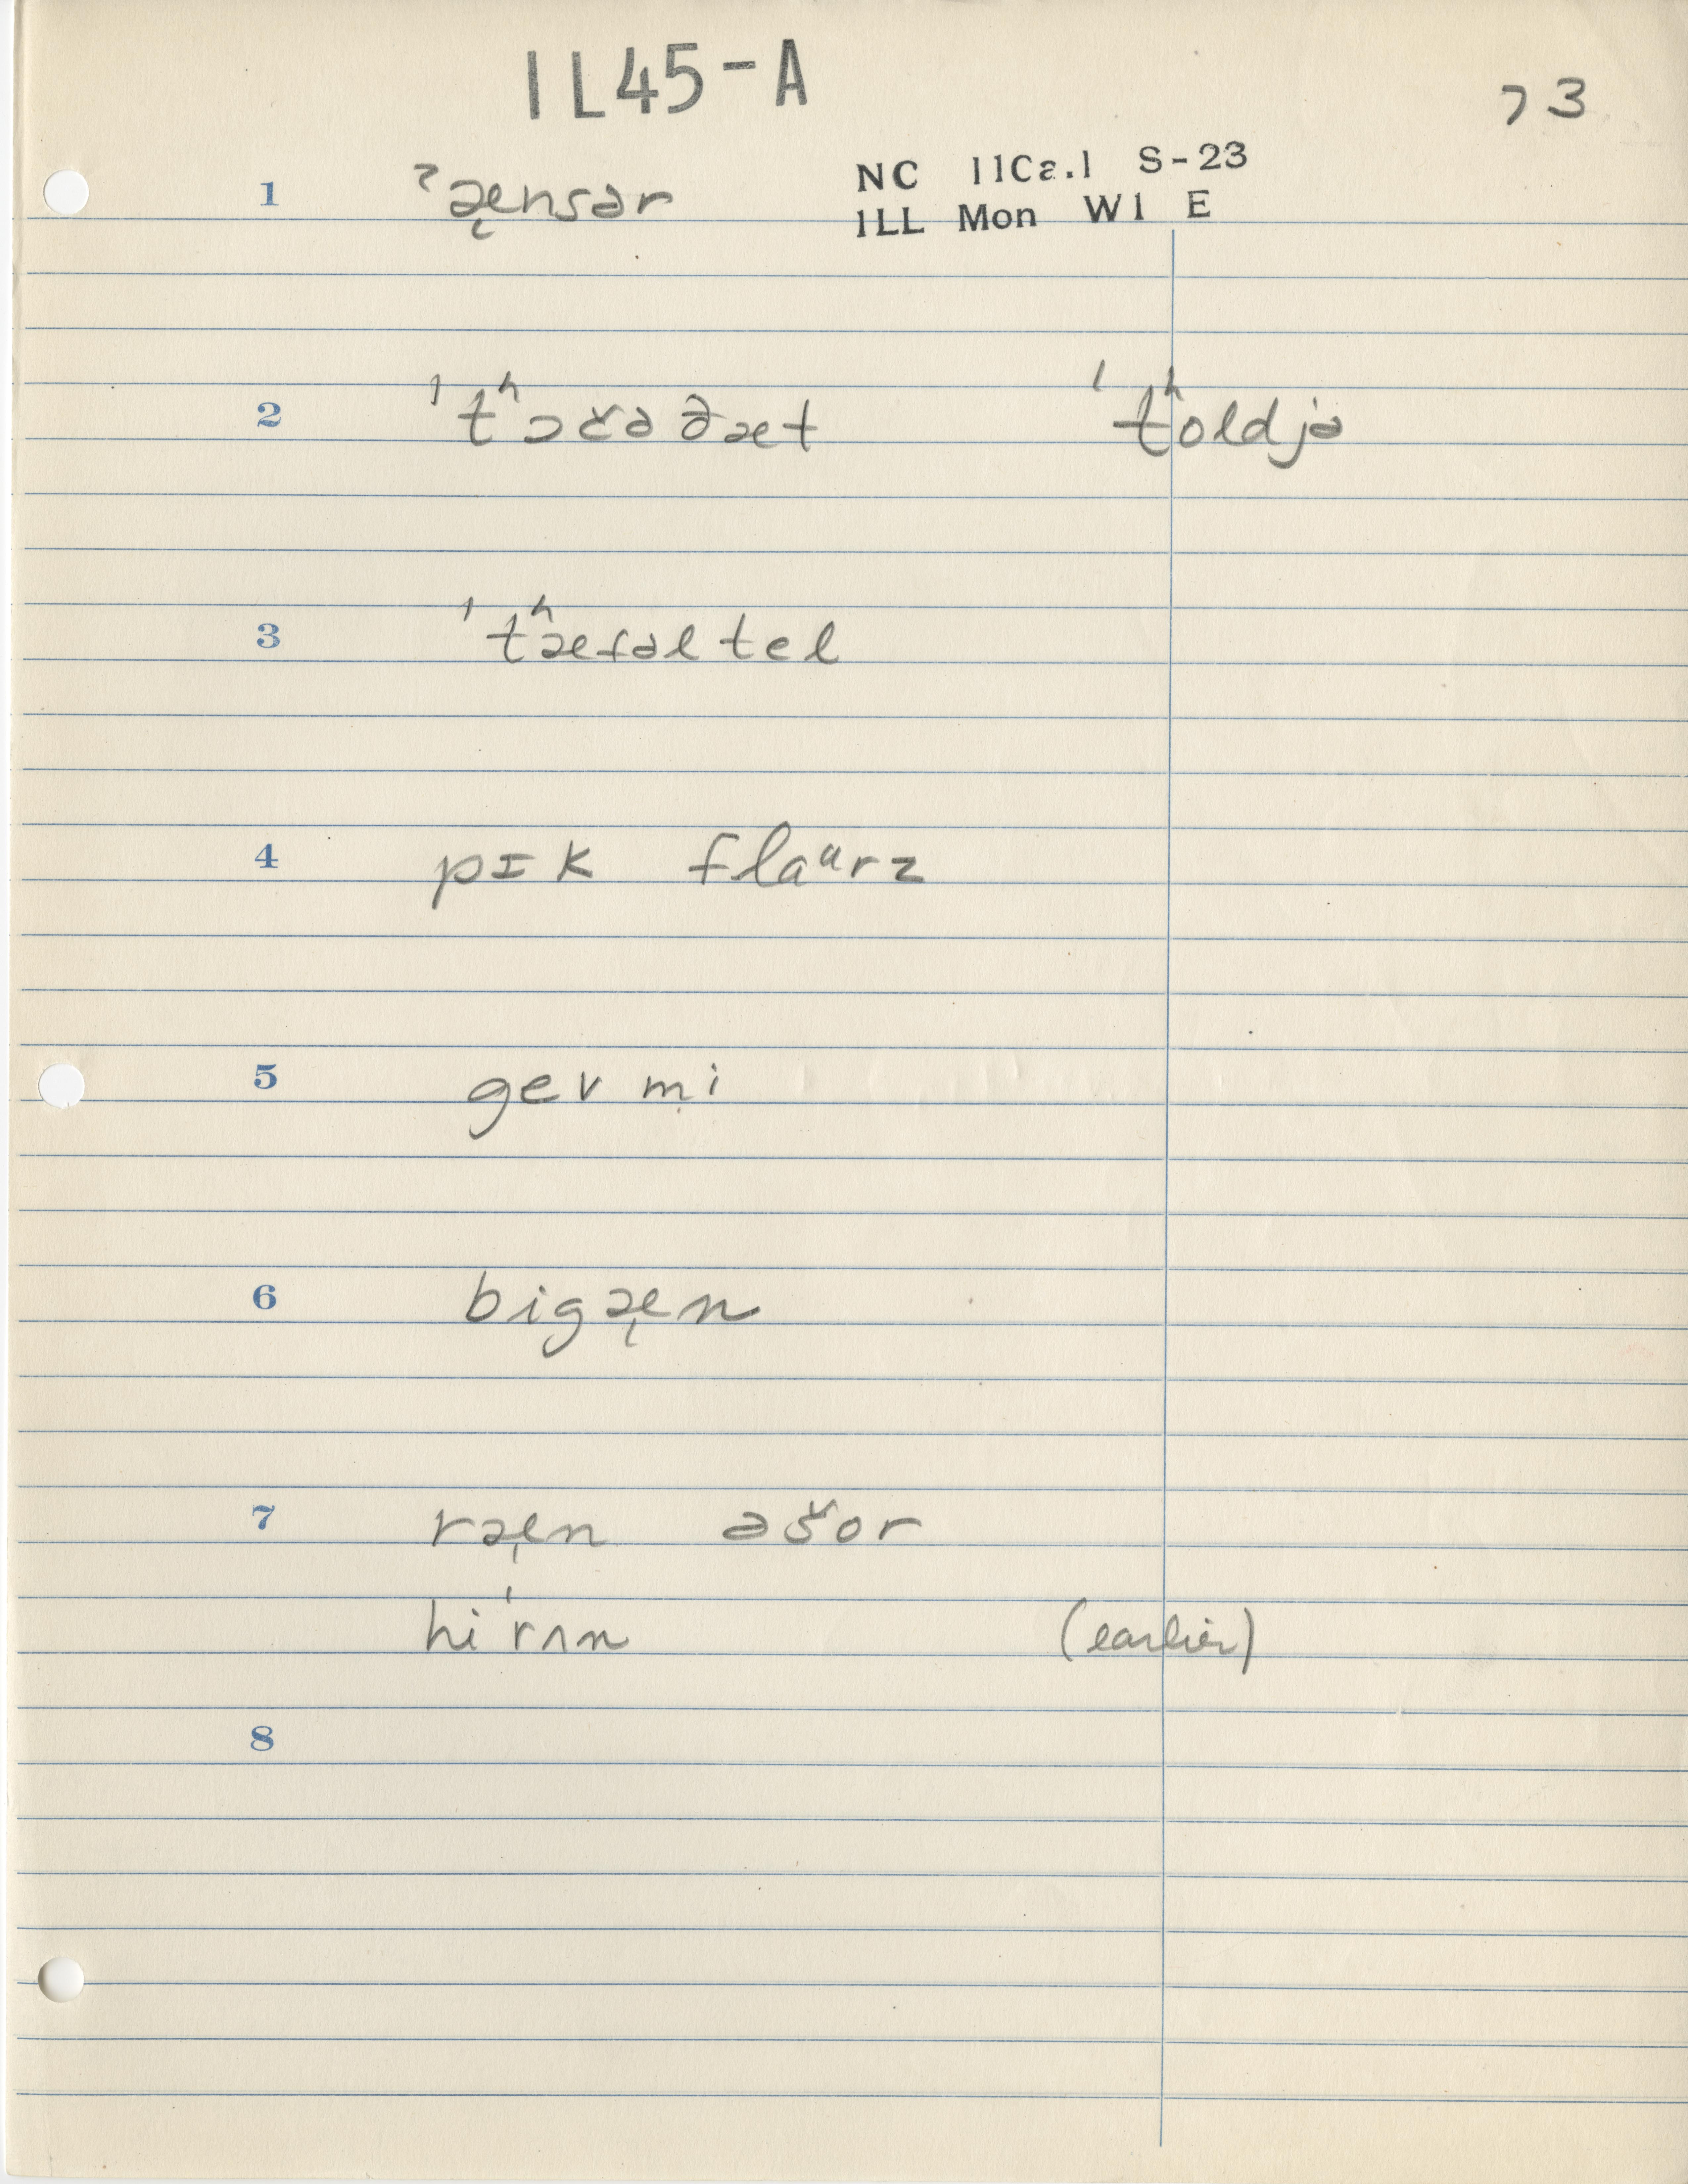 IL45-A
73
NC IICa.1 S-23
ILL Mon W1 E
1 ˀæ̨nsər
2 ˈtʰɔčə ðæt ˈtʰoldjə
3 ˈtʰæfəl tel
4 pɪk flaᵘrz
5 gev mi
6 bigæ̨n
7 ræ̨n əšor
hi ˈrʌn (earlier)
8